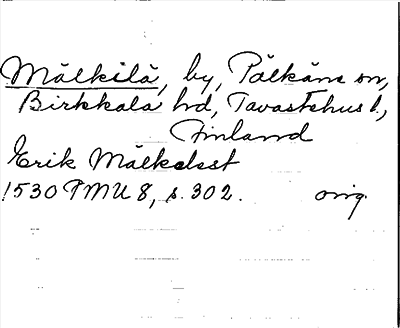 Mälkilä, by, Pälkäne sn,
Birkkala hd, Tavastehus l.,
Finland
Erik Mälkelsst
1530 PMU 8, s. 302. orig.